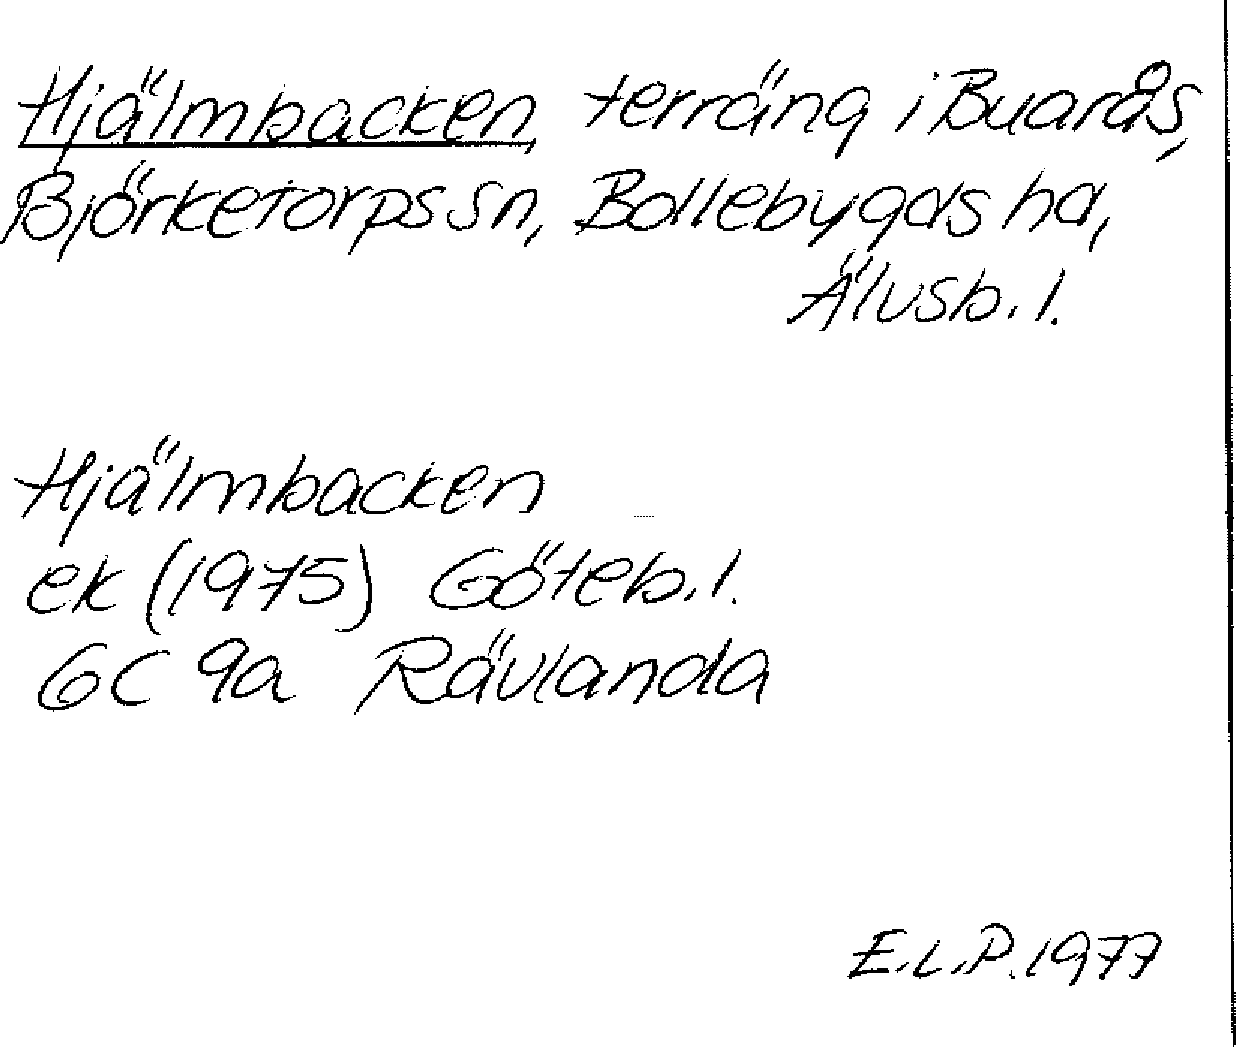 Hjälmbacken, terräng i Buarås,
Björketorps sn, Bollebygds hd,
Älvsb. l.
Hjälmbacken
ek (1975) Göteb. l.
6C 9a Rävlanda
E.L.P. 1977